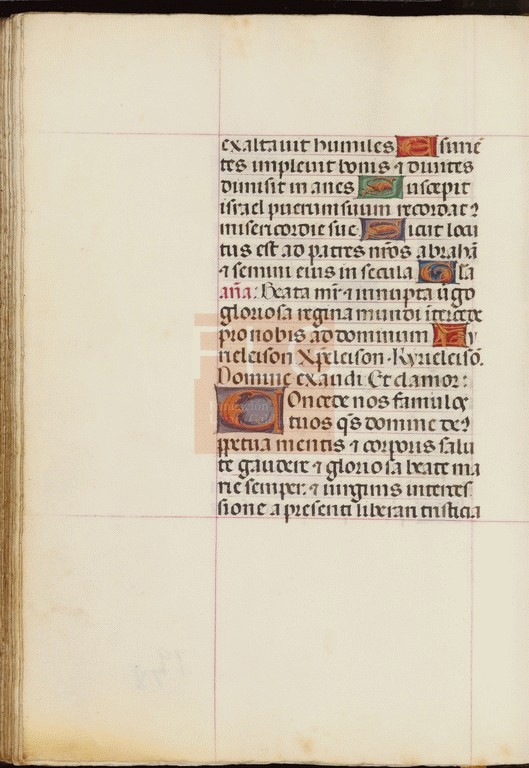 exaltauit humiles E surie
tes impleuit bonis ⁊ diuites
dimisit in anes S uscepit
israel puerum suum recordat⁹
misericordie sue S icut locu
tus est ad patres nr̄os abrahā
⁊ semini eius in secula G l'a
an̄a: Beata mr̄ ⁊ innupta ũgo
gloriosa regina mundi ītercede
pro nobis ad dominum K y
rieleison Xp̄eleison. Kyrieleisō.
Domine exaudi Et clamor:
C Oncede nos famulos
tuos q̄s domine de⁹
ꝑpetua mentis ⁊ corporis salu
te gaudere ⁊ gloriosa beate ma
rie semper ⁊ uirginis interces
sione a presenti liberari tristicia